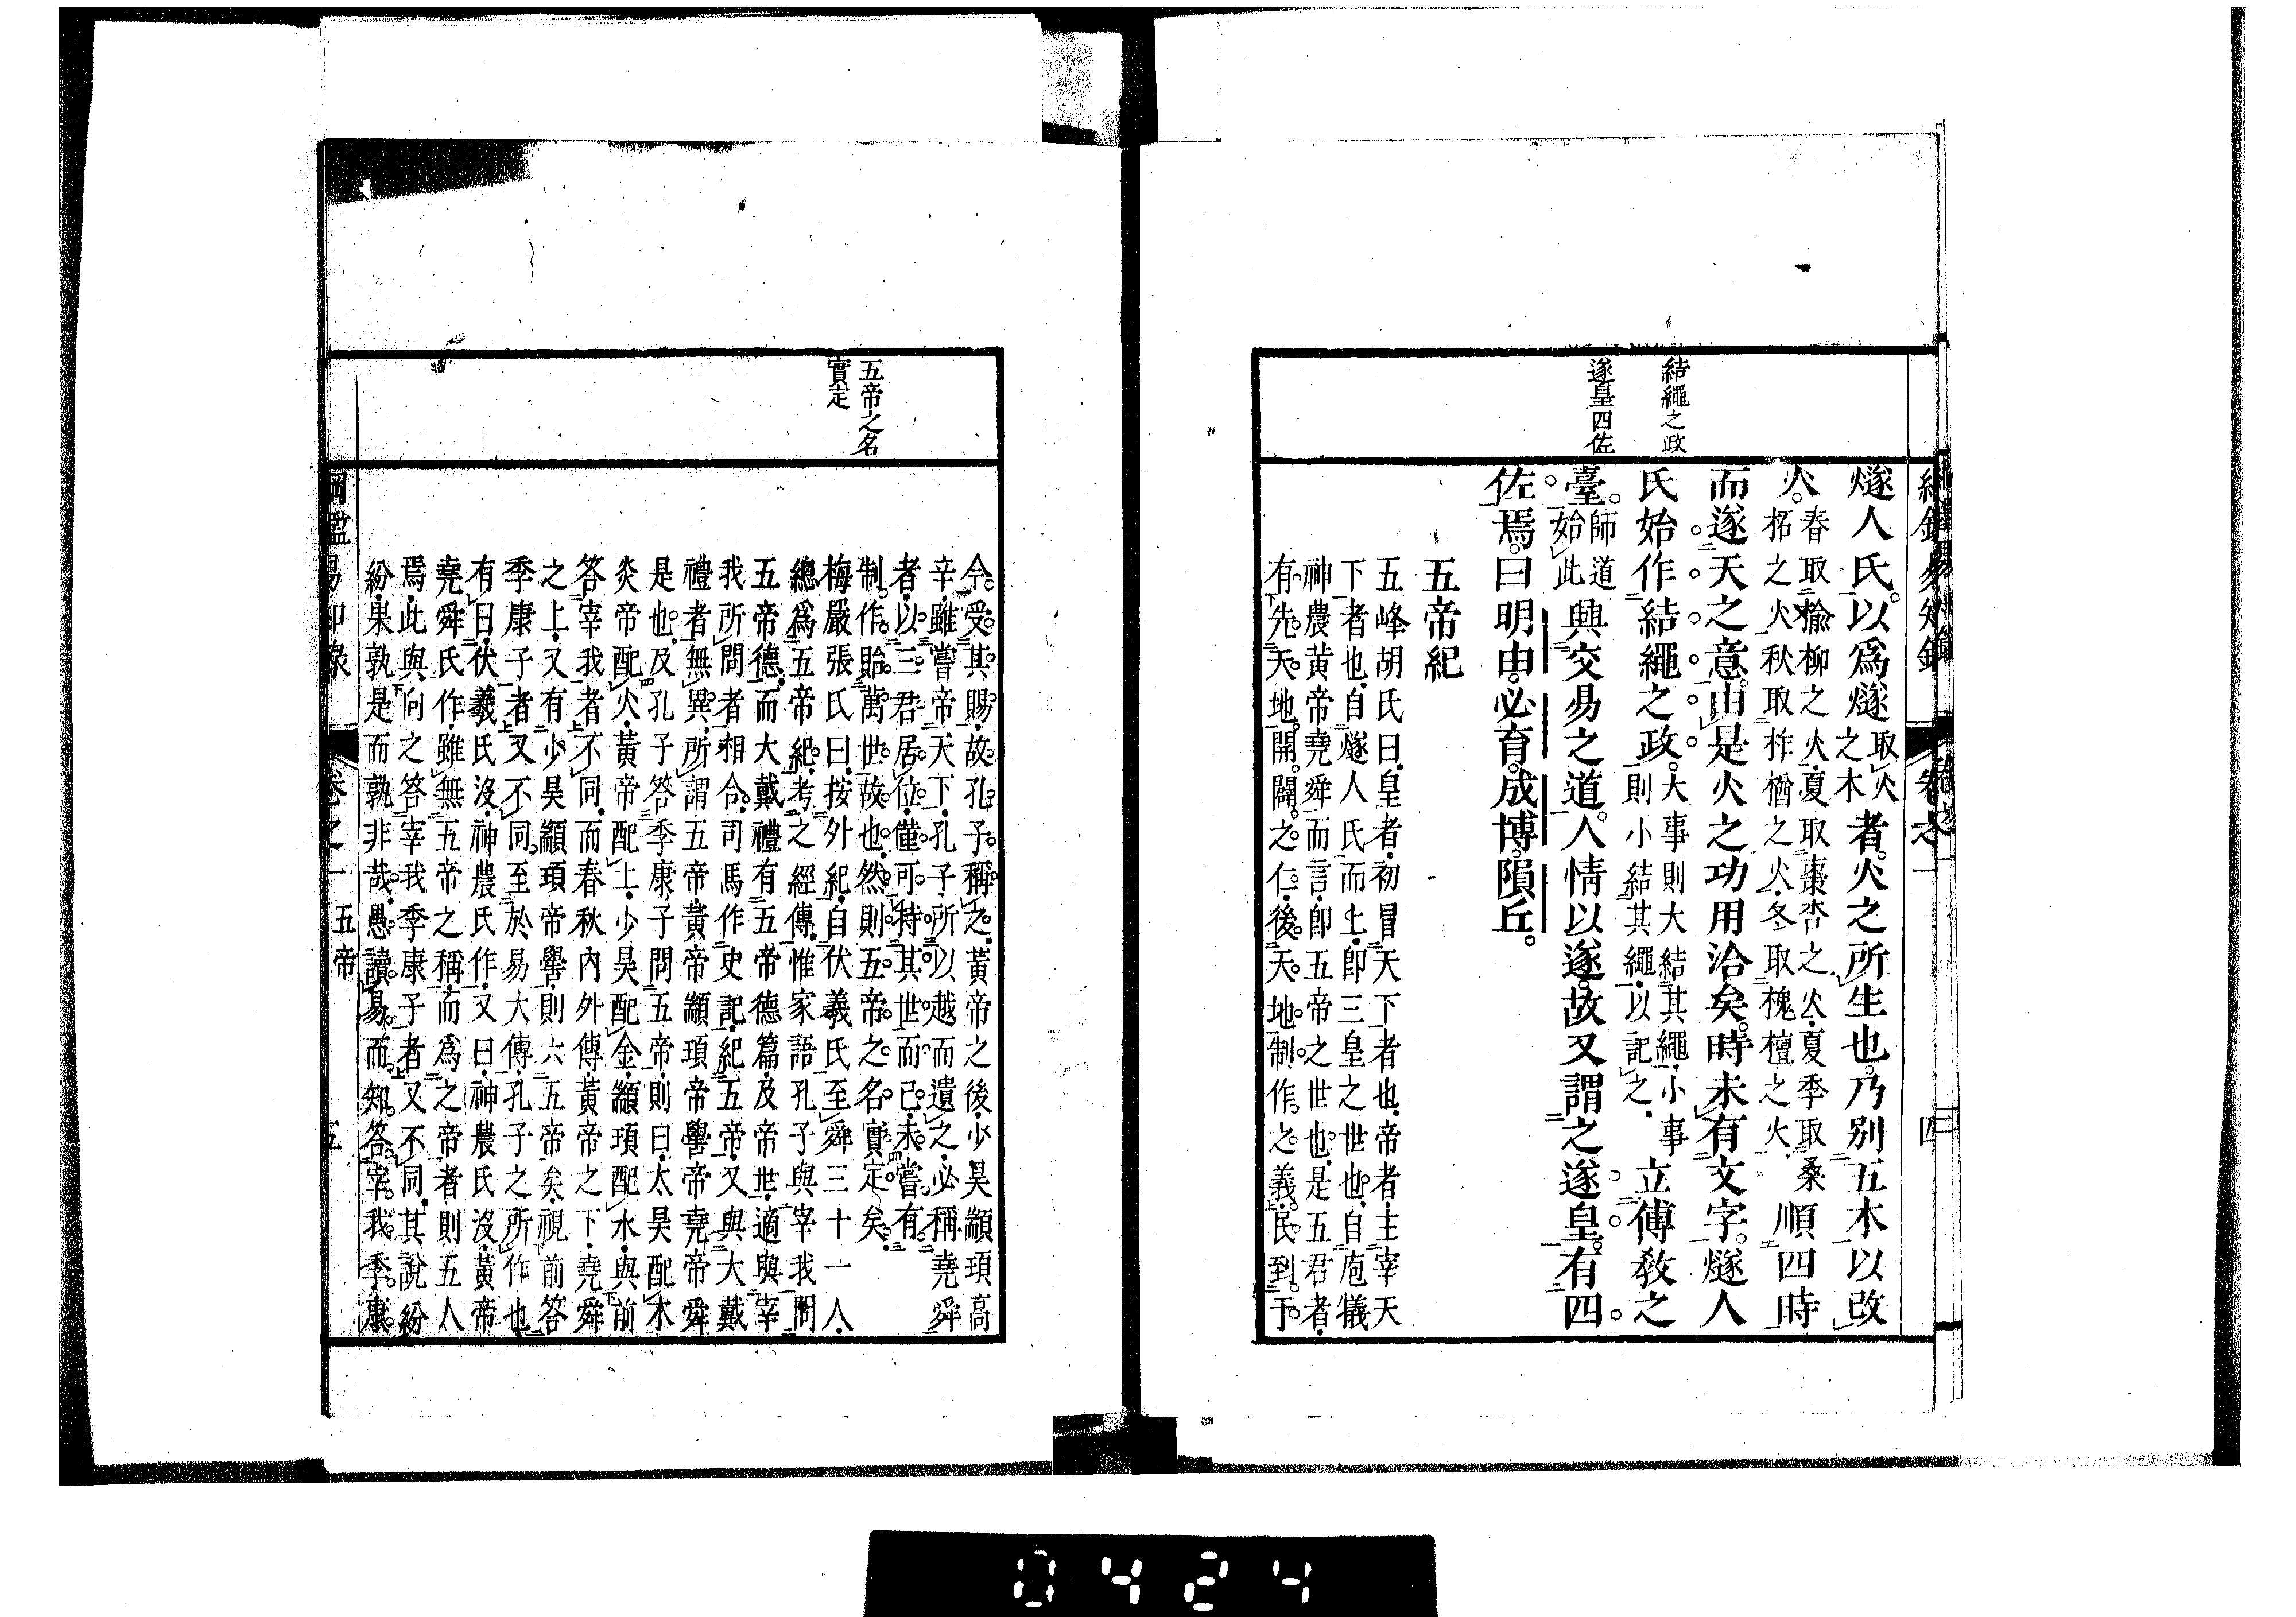 綱鑑易知録 卷之一 四
結繩之政
遂皇四佐
燧人氏。以爲燧取火之木者。火之所生也。乃別五木以改
火。春取楡柳之火。夏取棗杏之火。夏季取桑柘之火。秋取柞楢之火。冬取槐檀之火。順四時
而遂天之意。由是火之功用洽矣。時未有文字。燧人
氏始作結繩之政。大事則大結其繩。小事則小結其繩。以記之。立傅教之
臺。師道始此興交易之道。人情以遂。故又謂之遂皇。有四
佐焉。曰明由。必育。成博。隕丘。
五帝紀
五峰胡氏曰。皇者。初冒天下者也。帝者。主宰天
下者也。自燧人氏而上。卽三皇之世也。自庖犧
神農黃帝堯舜而言。卽五帝之世也。是五君者。
有先天地。開闢之仁。後天地。制作之義。民到于
五帝之名
實定
今受其賜。故孔子稱之。黃帝之後。少昊顓頊高
辛。雖嘗帝天下。孔子所以越而遺之。必稱堯舜
者。以三君居位。僅可持其世而已。未嘗有
制作貽萬世故也。然則五帝之名實定矣。
梅巖張氏曰。按外紀。自伏羲氏至舜三十一人。
總爲五帝紀。考之經傳。惟家語孔子與宰我問
五帝德。而大戴禮有五帝德篇。及帝世。適與宰
我所問者相合。司馬作史記。紀五帝。又與大戴
禮者無異。所謂五帝。黃帝顓頊帝嚳帝堯帝舜
是也。及孔子答季康子問五帝。則曰。太昊配木
炎帝配火。黃帝配土。少昊配金。顓頊配水。與前
答宰我者不同。而春秋內外傳。黃帝之下。堯舜
之上。又有少昊顓頊帝嚳。則六五帝矣。視前答
季康子者又不同。至於易大傳。孔子之所作也
有曰。伏羲氏沒。神農氏作。又曰。神農氏沒。黃帝
堯舜氏作。雖無五帝之稱。而爲之帝者則五人
焉。此與向之答宰我季康子者又不同。其說紛
紛。果孰是而孰非哉。愚讀易而知答宰我季康
綱鑑易知錄 卷之一 五帝 五
0424